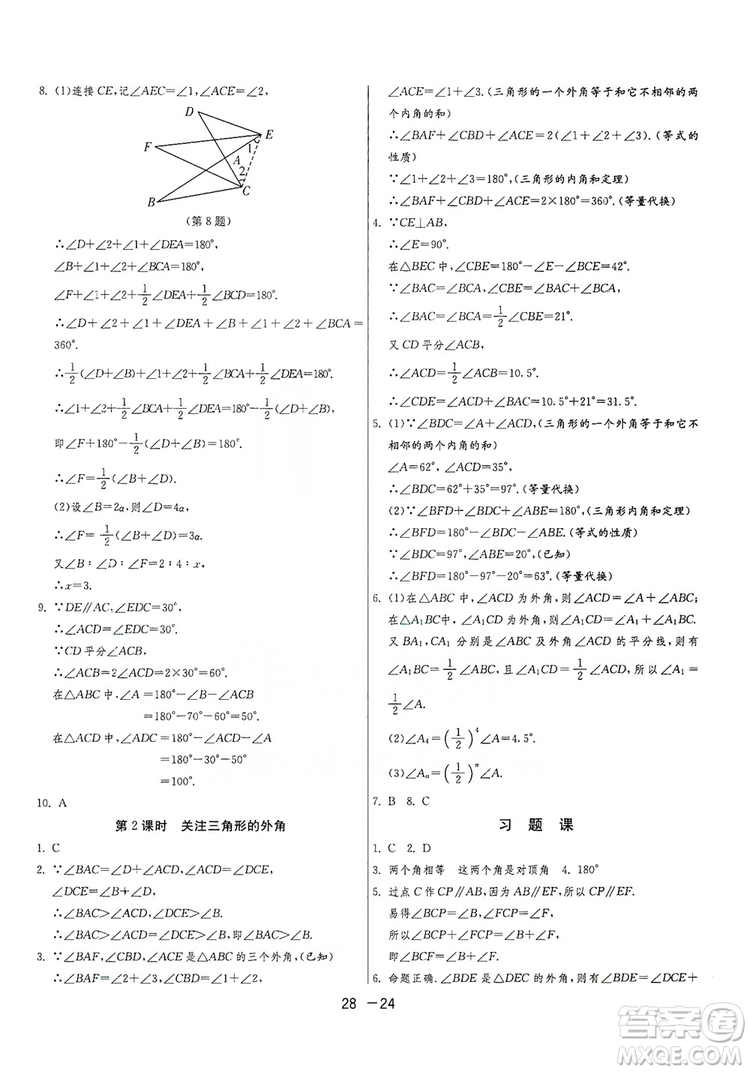 8. (1)连接 CE,记∠AEC=∠1,∠ACE=∠2,
D
E
F
1
A
2
C
B
(第 8 题)
∴∠D+∠2+∠1+∠DEA=180°,
∠B+∠1+∠2+∠BCA=180°,
∠F+∠1+∠2+1/2∠DEA+1/2∠BCD=180°.
∴∠D+∠2+∠1+∠DEA+∠B+∠1+∠2+∠BCA=
360°.
∴1/2(∠D+∠B)+∠1+∠2+1/2∠BCA+1/2∠DEA=180°.
∴∠1+∠2+1/2∠BCA+1/2∠DEA=180°-1/2(∠D+∠B),
即∠F+1/2(∠D+∠B)=180°.
∴∠F=1/2(∠B+∠D).
(2)设∠B=2α,则∠D=4α.
∴∠F=1/2(∠B+∠D)=3α.
又∠B∶∠D∶∠F=2∶4∶x,
∴x=3.
9. ∵DE∥AC,∠EDC=30°,
∴∠ACD=∠EDC=30°.
∵CD 平分∠ACB,
∴∠ACB=2∠ACD=2×30°=60°.
在△ABC 中,∠A=180°-∠B-∠ACB
=180°-70°-60°=50°.
在△ACD 中,∠ADC=180°-∠ACD-∠A
=180°-30°-50°
=100°.
10. A
第 2 课时 关注三角形的外角
1. C
2. ∵∠BAC=∠D+∠ACD,∠ACD=∠DCE,
∠DCE=∠B+∠D,
∴∠BAC>∠ACD,∠DCE>∠B.
∴∠BAC>∠ACD=∠DCE>∠B,即∠BAC>∠B.
3. ∵∠BAF,∠CBD,∠ACE是△ABC 的三个外角,(已知)
∴∠BAF=∠2+∠3,∠CBD=∠1+∠3,
∠ACE=∠1+∠2.(三角形的一个外角等于和它不相邻的两
个内角的和)
∴∠BAF+∠CBD+∠ACE=2(∠1+∠2+∠3).(等式的
性质)
∵∠1+∠2+∠3=180°,(三角形的内角和定理)
∴∠BAF+∠CBD+∠ACE=2×180°=360°.(等量代换)
4. ∵CE⊥AB,
∴∠E=90°.
在△BEC 中,∠CBE=180°-∠E-∠BCE=42°.
∵∠BAC=∠BCA,∠CBE=∠BAC+∠BCA,
∴∠BAC=∠BCA=1/2∠CBE=21°.
又 CD 平分∠ACB,
∴∠ACD=1/2∠ACB=10.5°.
∴∠CDE=∠ACD+∠BAC=10.5°+21°=31.5°.
5. (1)∵∠BDC=∠A+∠ACD,(三角形的一个外角等于和它不
相邻的两个内角的和)
∠A=62°,∠ACD=35°,
∴∠BDC=62°+35°=97°.(等量代换)
(2)∵∠BFD+∠BDC+∠ABE=180°,(三角形内角和定理)
∴∠BFD=180°-∠BDC-∠ABE.(等式的性质)
∵∠BDC=97°,∠ABE=20°,(已知)
∴∠BFD=180°-97°-20°=63°.(等量代换)
6. (1)在△ABC 中,∠ACD 为外角,∠ACD=∠A+∠ABC;
在△A₁BC中,∠A₁CD 为外角,∠A₁CD=∠A₁+∠A₁BC.
又 BA₁,CA₁ 分别是∠ABC 及外角∠ACD 的平分线,则有
∠A₁BC=1/2∠ABC,且∠A₁CD=1/2∠ACD.所以∠A₁=
1/2∠A.
(2)∠A₄=(1/2)⁴∠A=4.5°.
(3)∠Aₙ=(1/2)ⁿ∠A.
7. B 8. C
习 题 课
1. C 2. D
3. 两个角相等 这两个角是对顶角 4. 180°
5. 过点 C 作 CP∥AB,因为 AB∥EF,所以 CP∥EF.
易得∠BCP=∠B,∠FCP=∠F,
所以∠BCP+∠FCP=∠B+∠F,
即∠BCF=∠B+∠F.
6. 命题正确. ∠BDE 是△DEC 的外角,∴∠BDE=∠DCE+
28 -24
答案圈
MXQE.COM